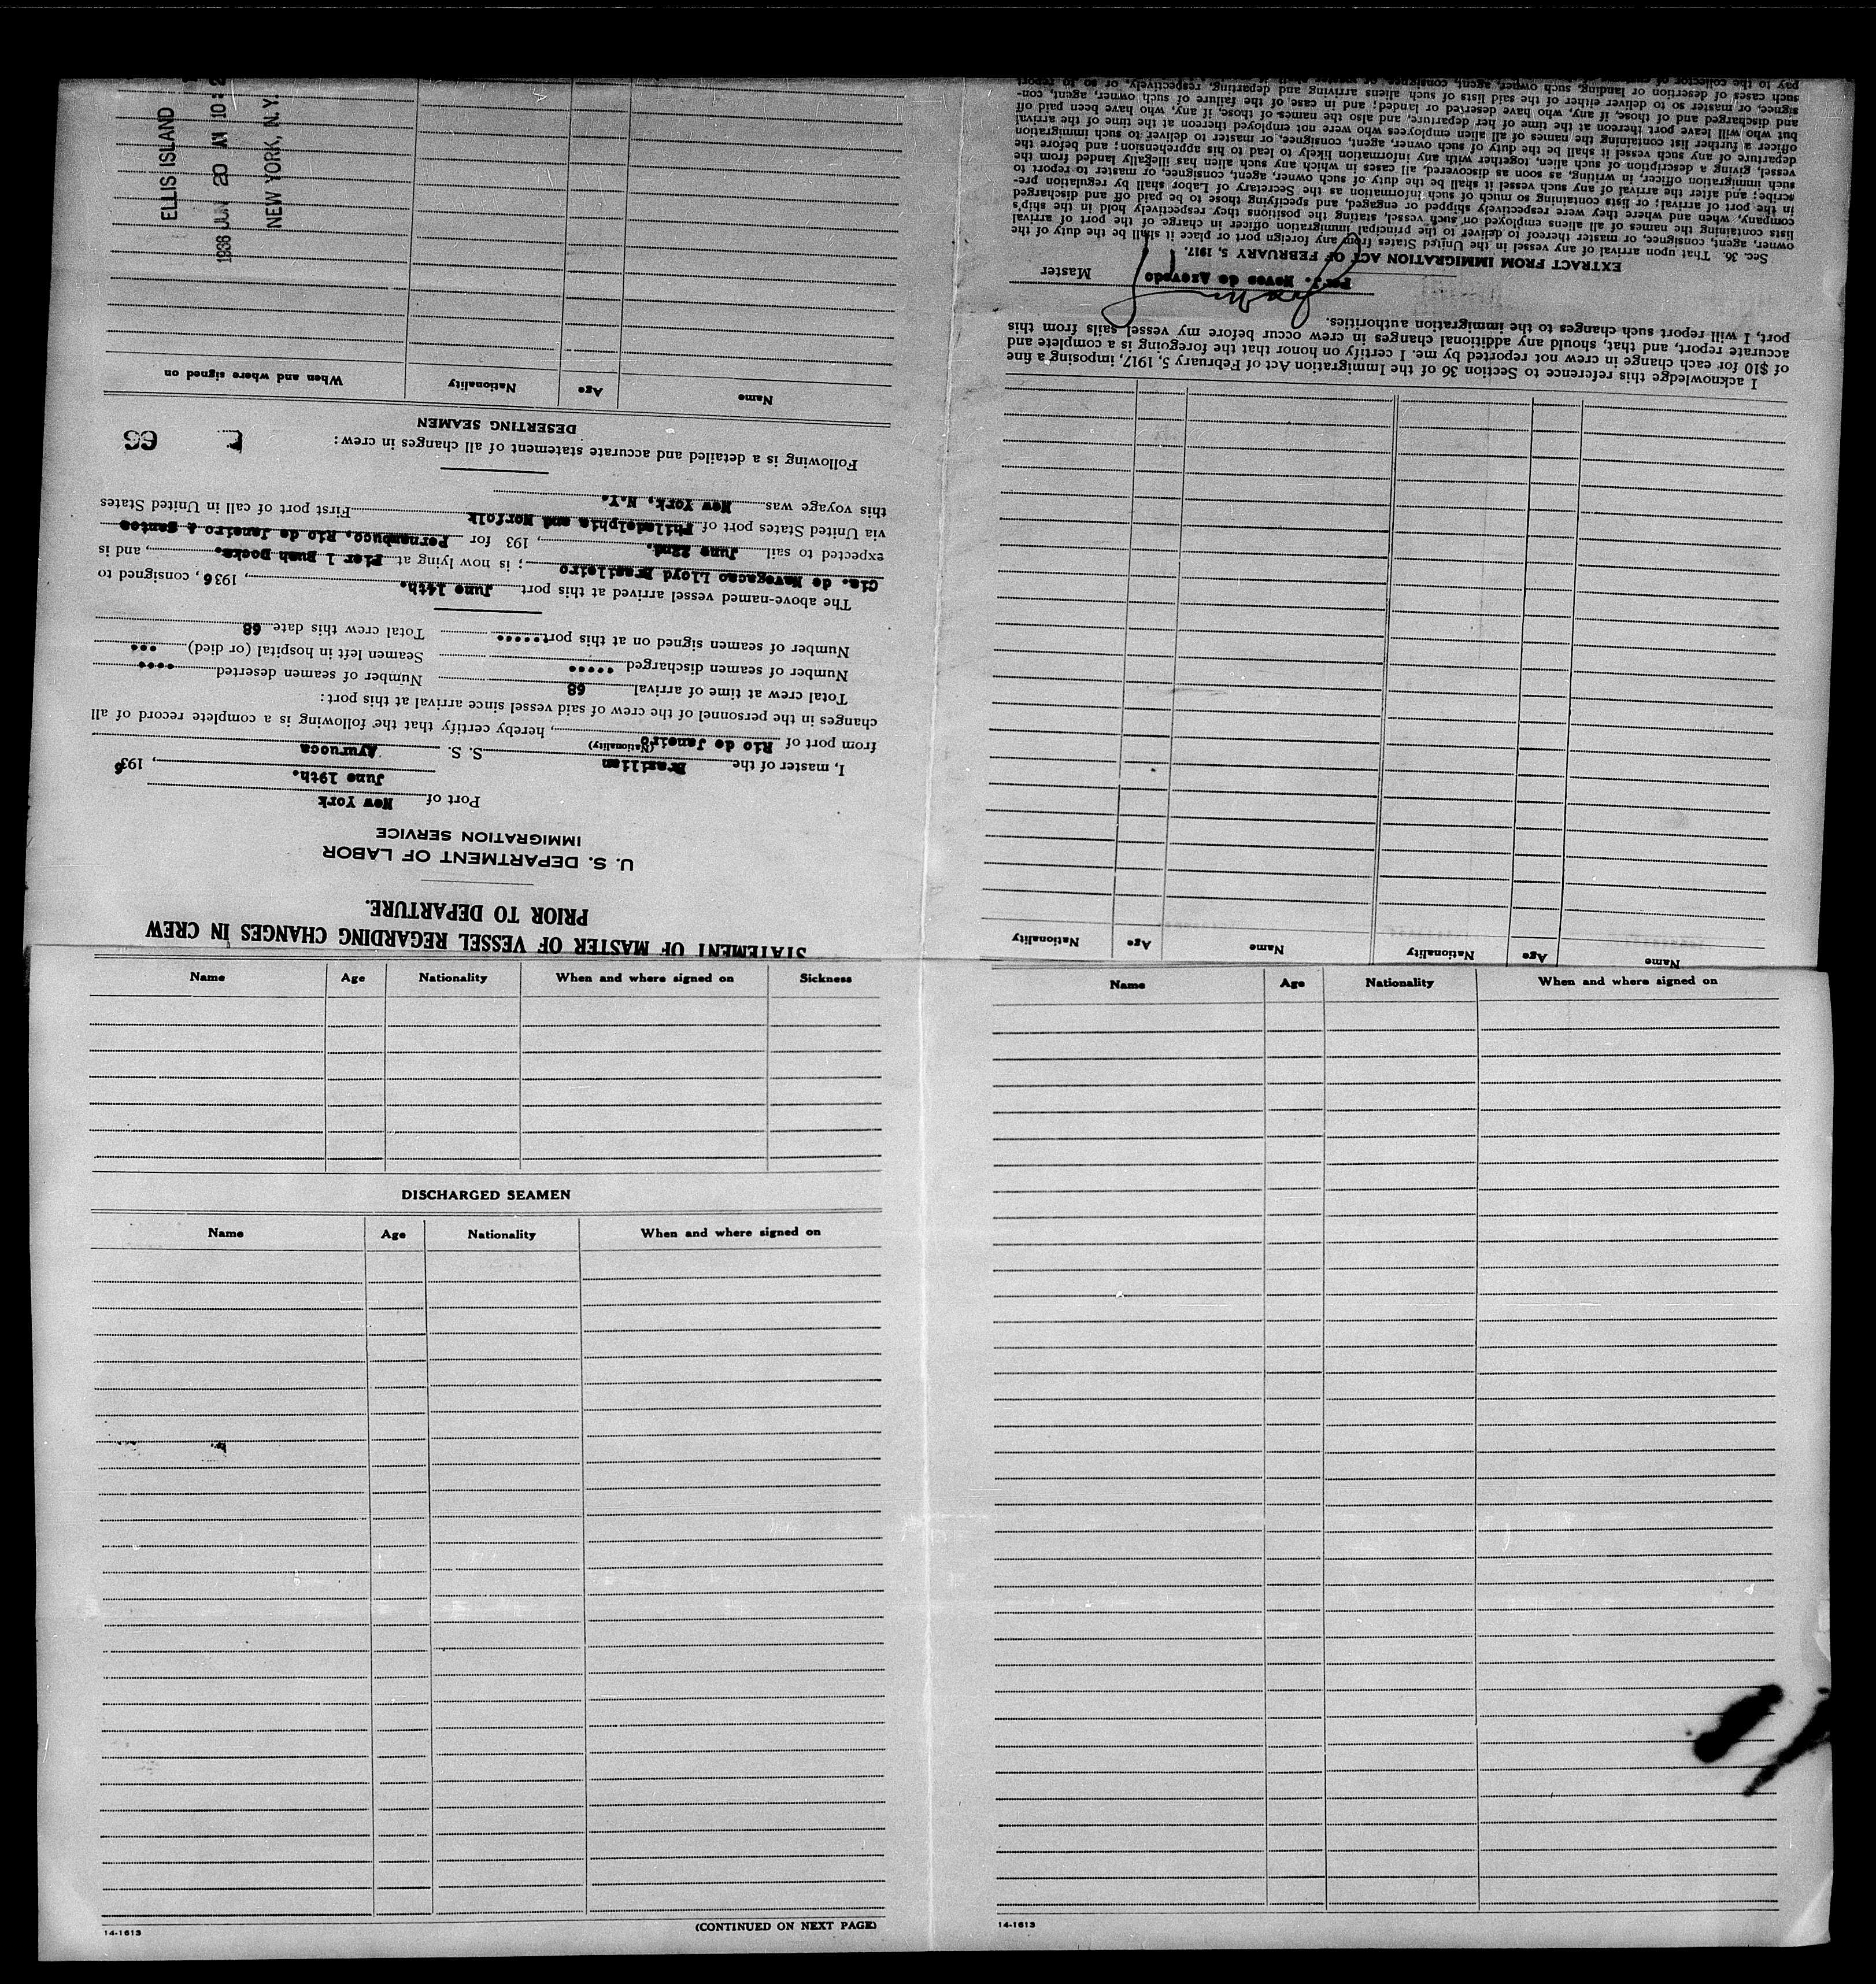 STATEMENT OF MASTER OF VESSEL REGARDING CHANGES IN CREW
PRIOR TO DEPARTURE.
U. S. DEPARTMENT OF LABOR
IMMIGRATION SERVICE
Port of New York
June 19th. , 1936
I, master of the Brazilian S. S. Ayuruoca
(Nationality)
from port of Rio de Janeiro , hereby certify that the following is a complete record of all
changes in the personnel of the crew of said vessel since arrival at this port:
Total crew at time of arrival 68 Number of seamen deserted ....
Number of seamen discharged ..... Seamen left in hospital (or died) ...
Number of seamen signed on at this port ..... Total crew this date 68
The above-named vessel arrived at this port June 14th. , 1936 , consigned to
Cia. de Navegacao Lloyd Brasileiro ; is now lying at Pier 1 Bush Docks. , and is
expected to sail June 22nd. , 193 for Pernambuco, Rio de Janeiro & Santos
via United States port of Philadelphia and Norfolk First port of call in United States
this voyage was New York, N.Y.
Following is a detailed and accurate statement of all changes in crew:
DESERTING SEAMEN
Name Age Nationality When and where signed on
ELLIS ISLAND
1936 JUN 20 AM 10
NEW YORK, N.Y.
Name Age Nationality Name Age Nationality
I acknowledge this reference to Section 36 of the Immigration Act of February 5, 1917, imposing a fine
of $10 for each change in crew not reported by me. I certify on honor that the foregoing is a complete and
accurate report, and that, should any additional changes in crew occur before my vessel sails from this
port, I will report such changes to the immigration authorities.
J. Neves de Azevedo Master
EXTRACT FROM IMMIGRATION ACT OF FEBRUARY 5, 1917.
Sec. 36. That upon arrival of any vessel in the United States from any foreign port or place it shall be the duty of the
owner, agent, consignee, or master thereof to deliver to the principal immigration officer in charge of the port of arrival
lists containing the names of all aliens employed on such vessel, stating the positions they respectively hold in the ship's
company, when and where they were respectively shipped or engaged, and specifying those to be paid off and discharged
in the port of arrival; or lists containing so much of such information as the Secretary of Labor shall by regulation pre-
scribe; and after the arrival of any such vessel it shall be the duty of such owner, agent, consignee, or master to report to
such immigration officer, in writing, as soon as discovered, all cases in which any such alien has illegally landed from the
vessel, giving a description of such alien, together with any information likely to lead to his apprehension; and before the
departure of any such vessel it shall be the duty of such owner, agent, consignee, or master to deliver to such immigration
officer a further list containing the names of all alien employees who were not employed thereon at the time of the arrival
but who will leave port thereon at the time of her departure, and also the names of those, if any, who have been paid off
and discharged and of those, if any, who have deserted or landed; and in case of the failure of such owner, agent, con-
signee, or master so to deliver either of the said lists of such aliens arriving and departing, respectively, or so to report
such cases of desertion or landing, such owner, agent, consignee, or master shall
pay to the collector of
Name Age Nationality When and where signed on Sickness
DISCHARGED SEAMEN
Name Age Nationality When and where signed on
14-1613
(CONTINUED ON NEXT PAGE)
Name Age Nationality When and where signed on
14-1613